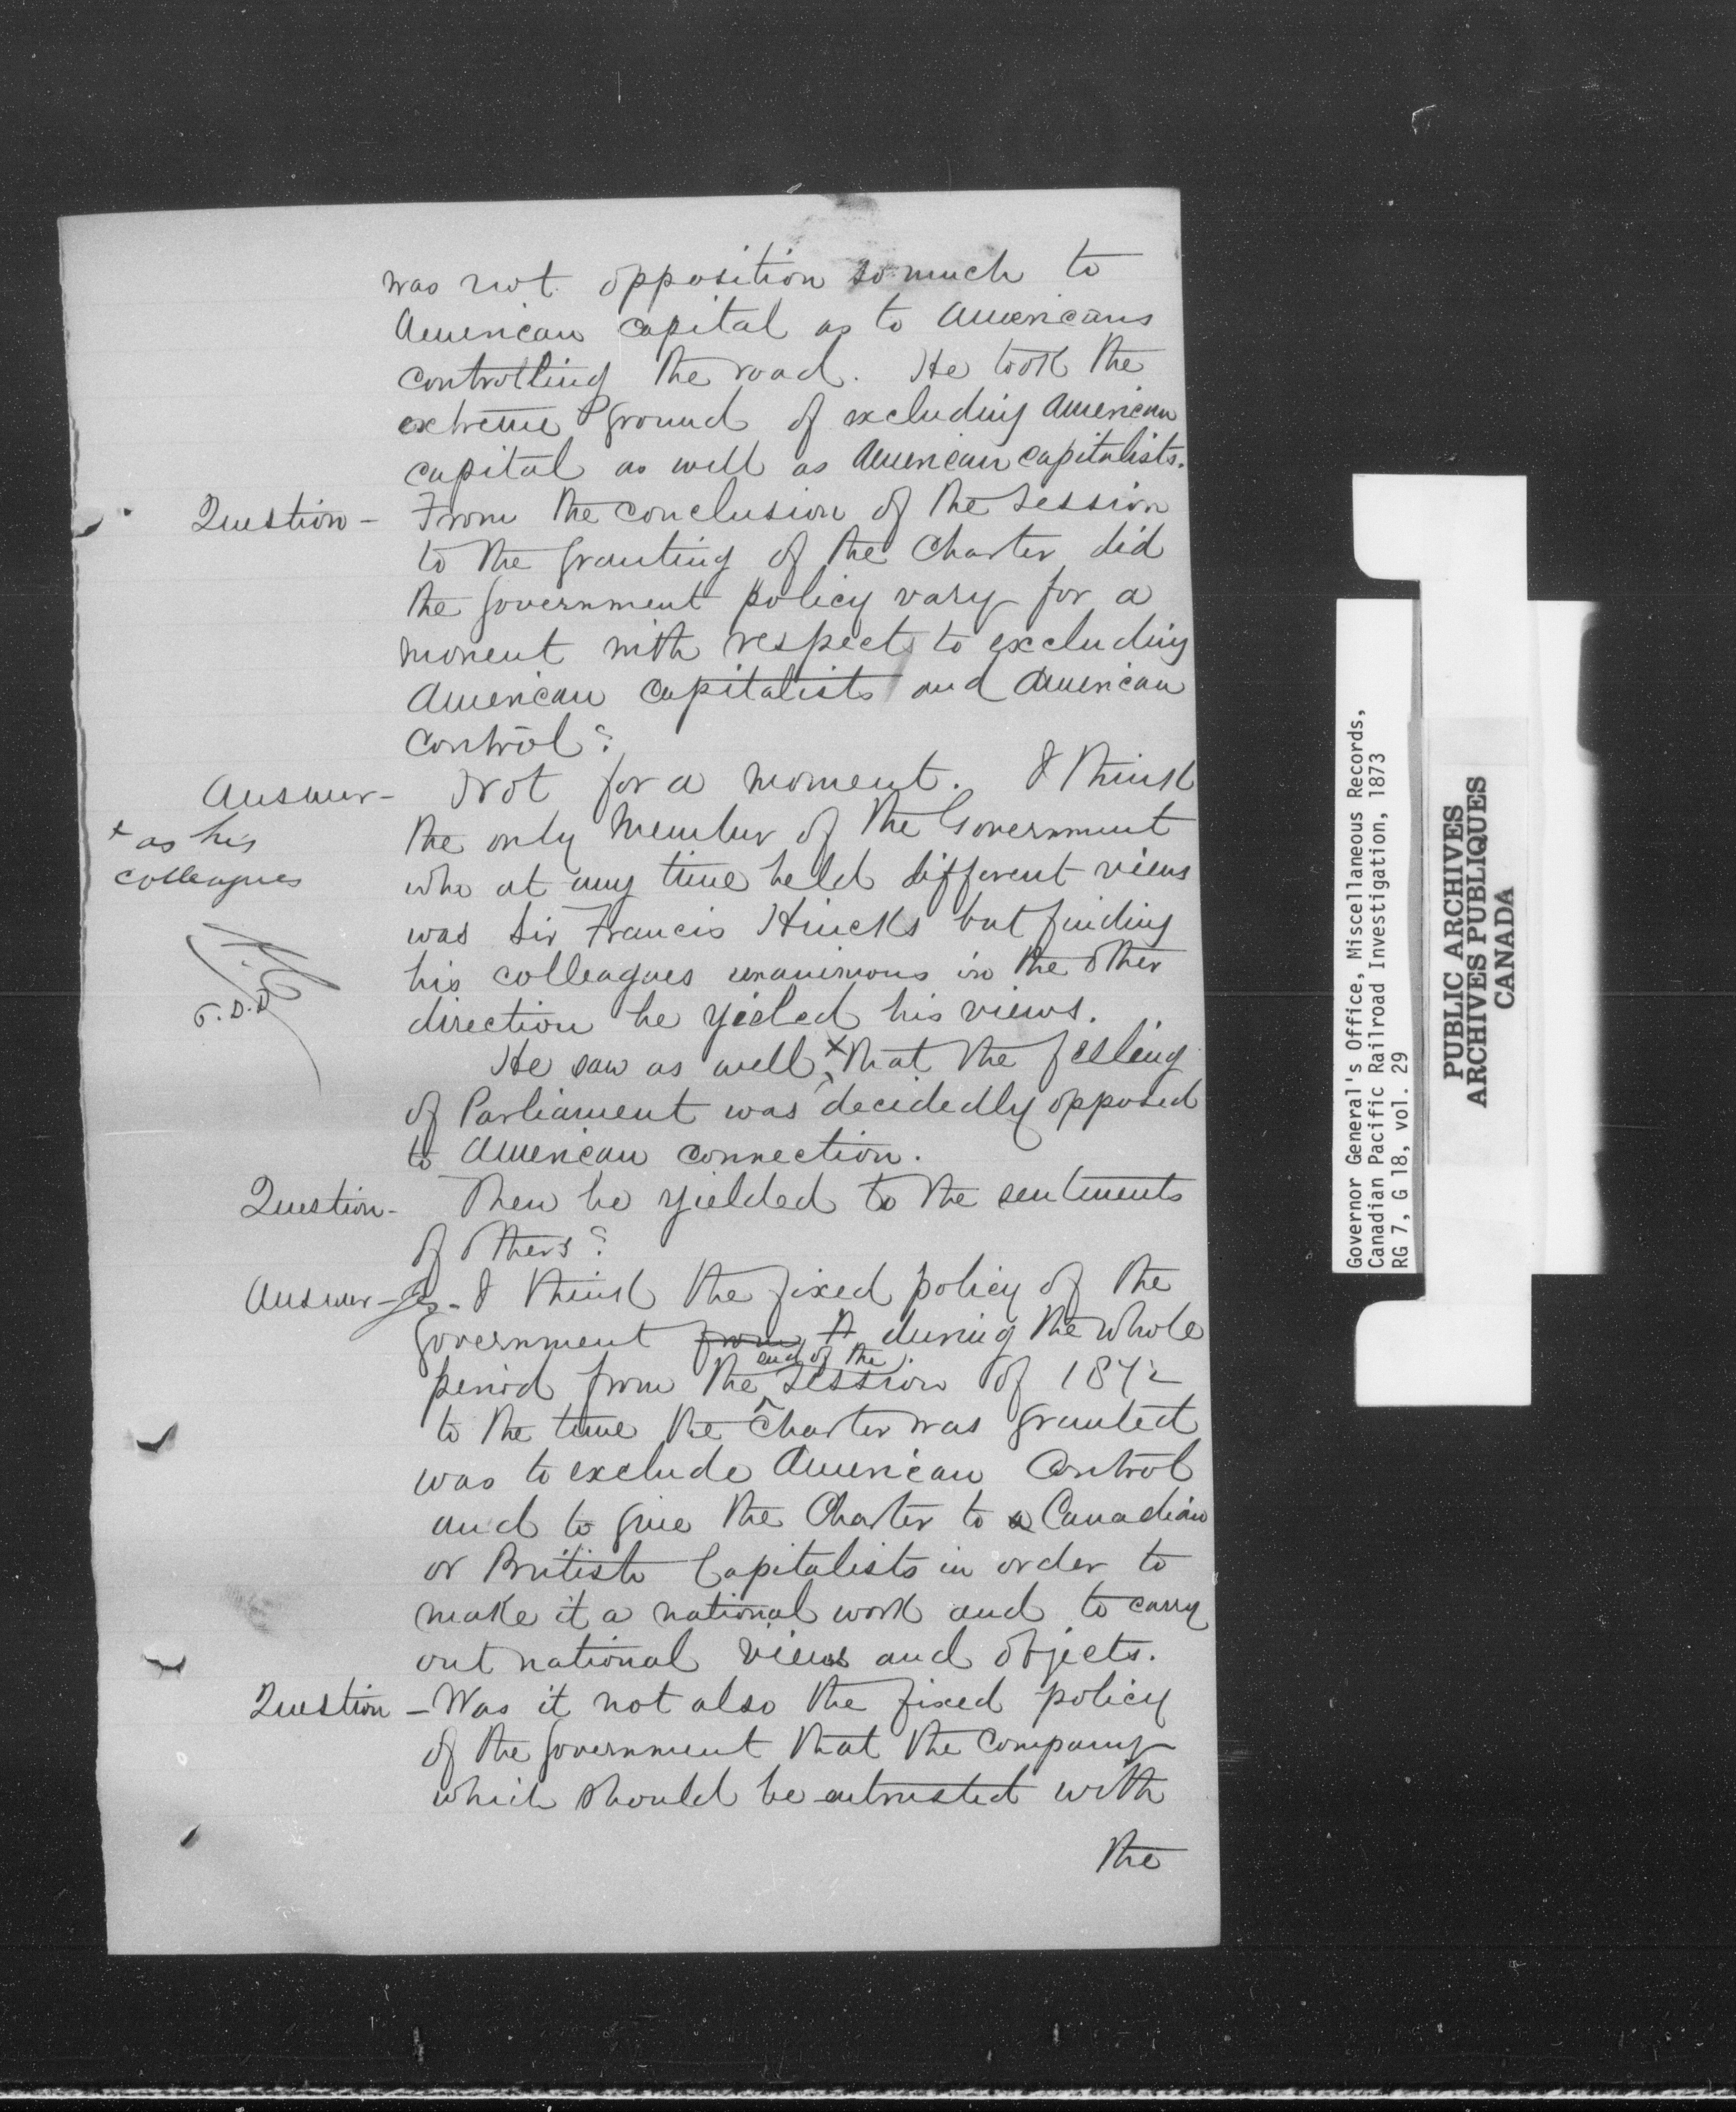 was not opposition so much to
American capital as to Americans
controlling the road. He took the
extreme ground of excluding American
capital as well as American capitalists.
Question - From the conclusion of the Session
to the granting of the Charter did
the Government policy vary for a
moment with respect to excluding
American capitalists and American
control?
Answer - Not for a moment. I think
the only Member of the Government
who at any time held different views
was Sir Francis Hincks but finding
his colleagues unanimous in the other
direction he yielded his views.
He saw as well x that the feeling
of Parliament was decidedly opposed
to American connection.
x as his
colleagues
C.D.D
Question - Then he yielded to the sentiments
of others?
Answer - Yes - I think the fixed policy of the
Government from during the whole
period from the end of the Session of 1872
to the time the Charter was granted
was to exclude American Control
and to give the Charter to a Canadian
or British Capitalists in order to
make it a national work and to carry
out national views and objects.
Question - Was it not also the fixed policy
of the Government that the Company
which should be entrusted with
the
Governor General's Office, Miscellaneous Records,
Canadian Pacific Railroad Investigation, 1873
RG 7, G 18, vol. 29
PUBLIC ARCHIVES
ARCHIVES PUBLIQUES
CANADA